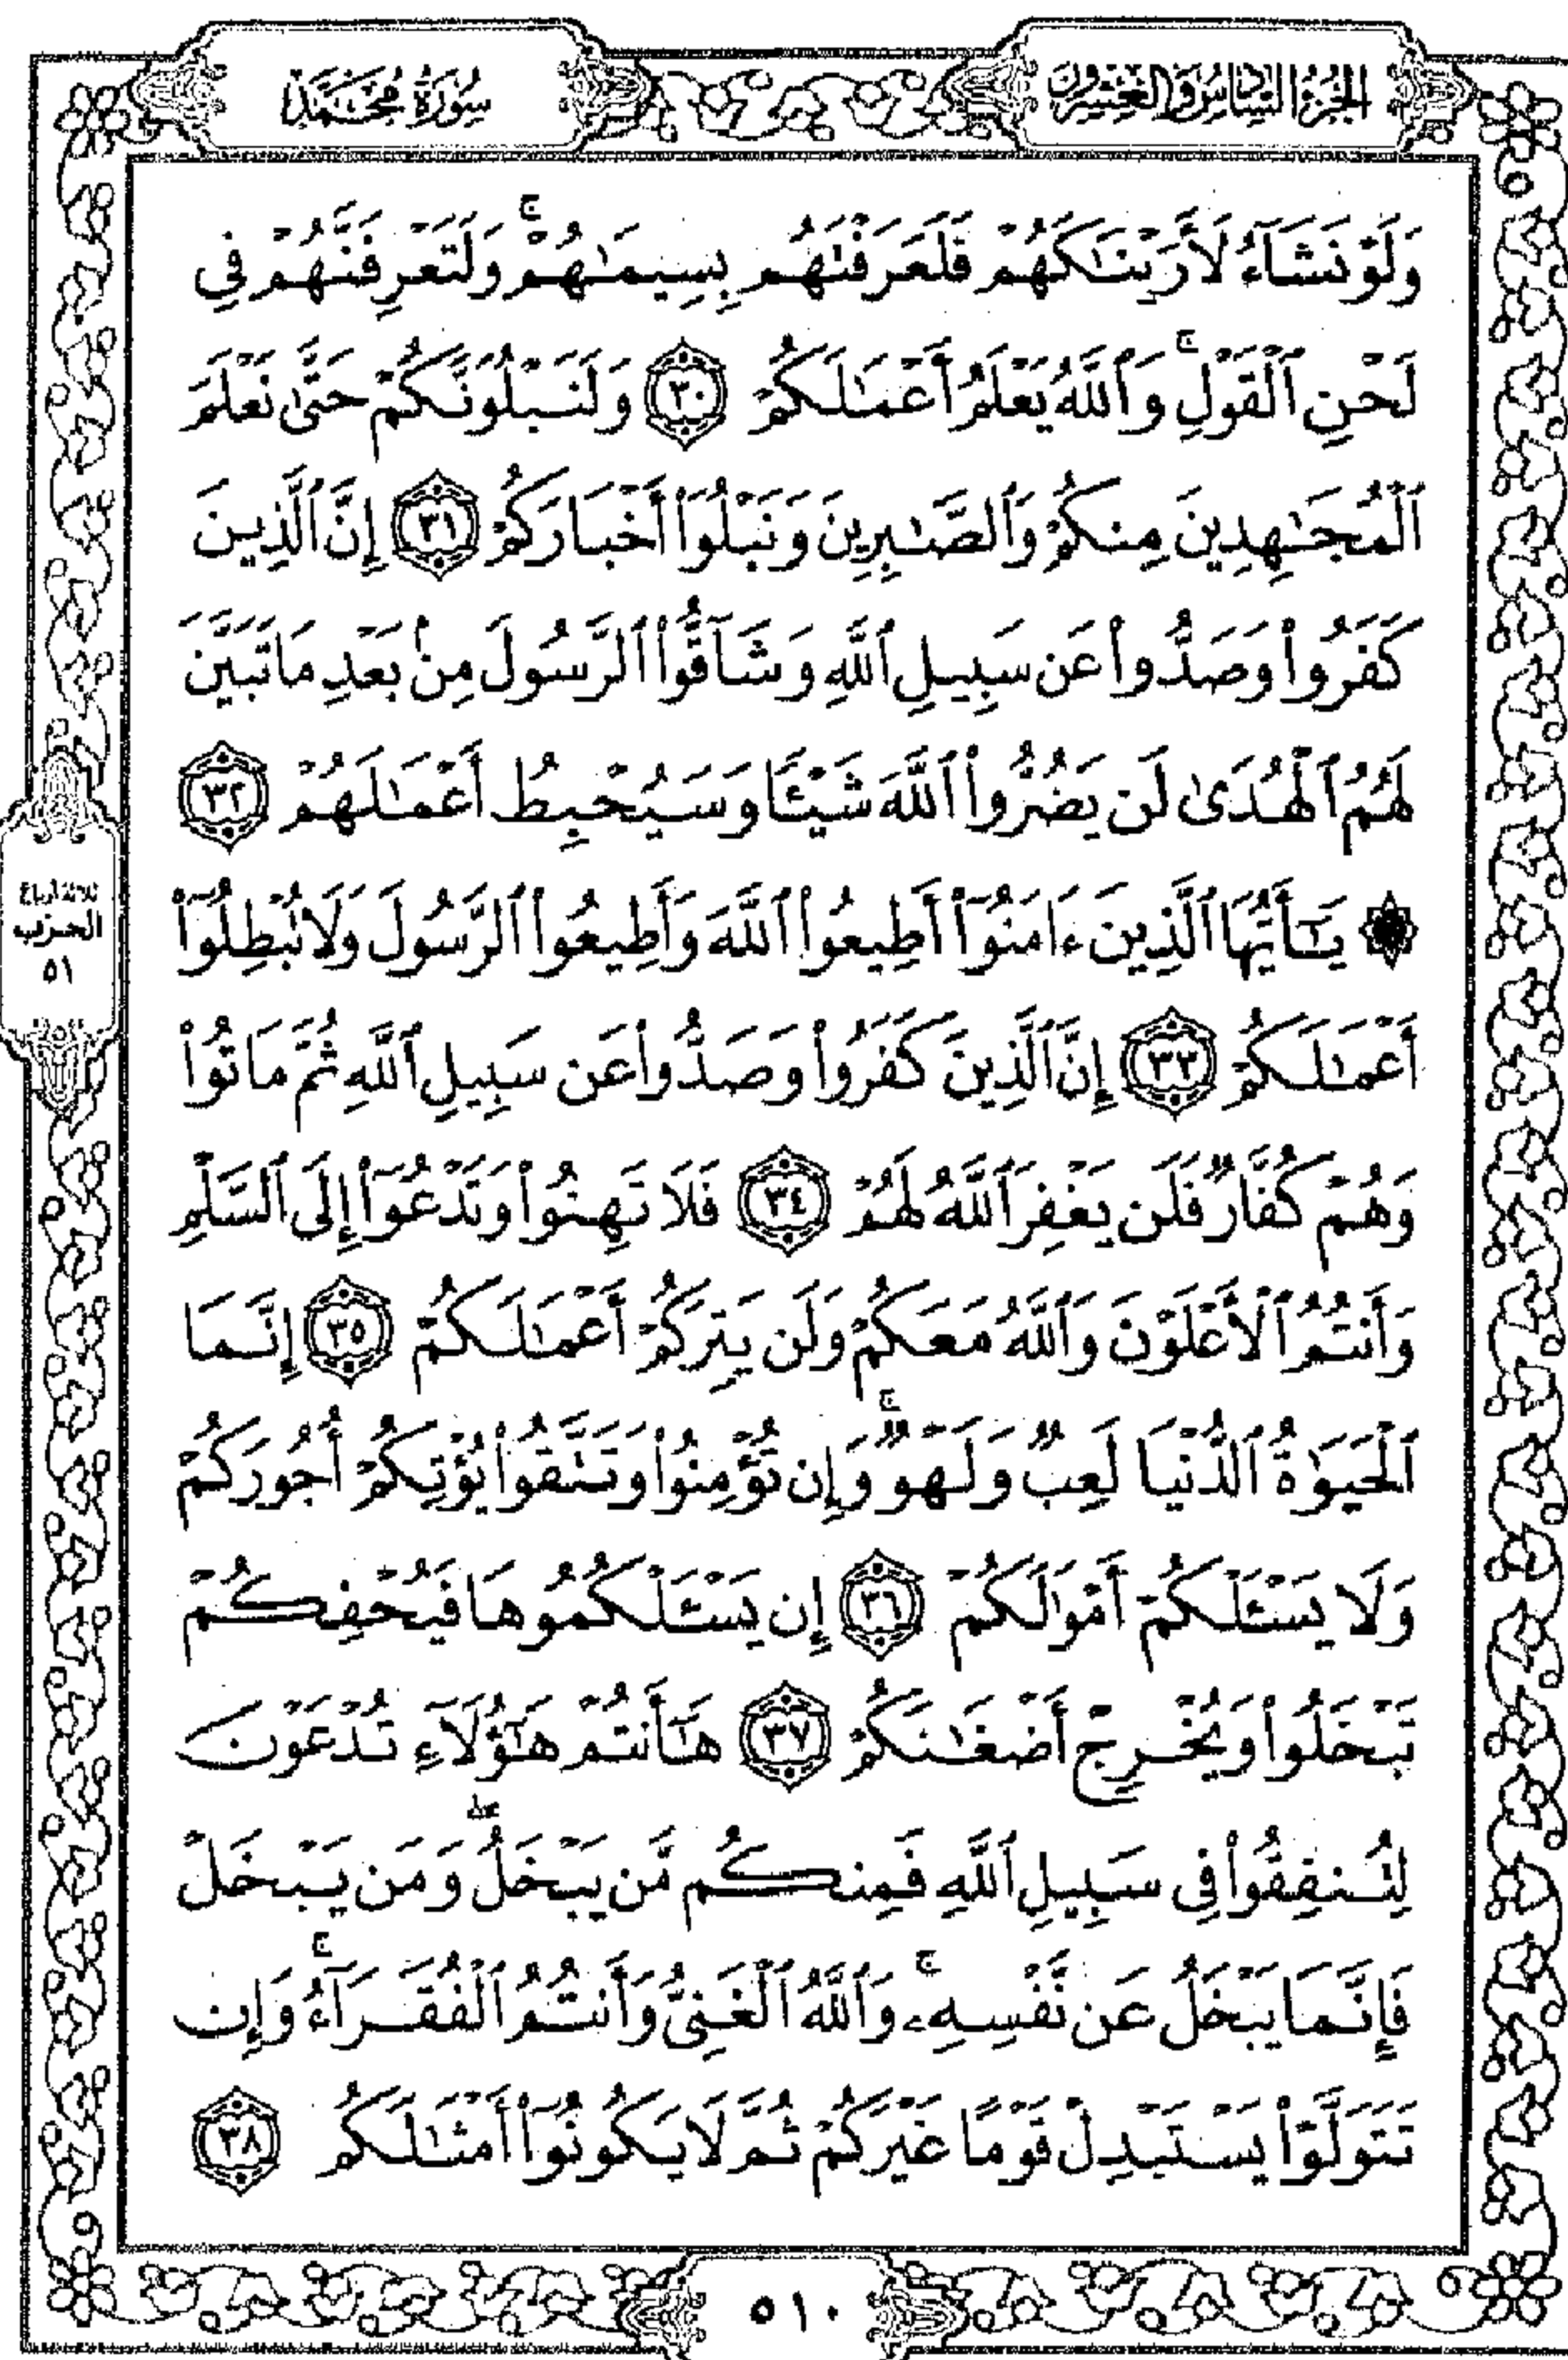 الجزء السادس والعشرون
سورة محمد
وَلَوْ نَشَآءُ لَأَرَيْنَٰكَهُمْ فَلَعَرَفْتَهُم بِسِيمَٰهُمْ ۚ وَلَتَعْرِفَنَّهُمْ فِى
لَحْنِ ٱلْقَوْلِ ۚ وَٱللَّهُ يَعْلَمُ أَعْمَٰلَكُمْ ٣٠ وَلَنَبْلُوَنَّكُمْ حَتَّىٰ نَعْلَمَ
ٱلْمُجَٰهِدِينَ مِنكُمْ وَٱلصَّٰبِرِينَ وَنَبْلُوَا۟ أَخْبَارَكُمْ ٣١ إِنَّ ٱلَّذِينَ
كَفَرُوا۟ وَصَدُّوا۟ عَن سَبِيلِ ٱللَّهِ وَشَآقُّوا۟ ٱلرَّسُولَ مِنۢ بَعْدِ مَا تَبَيَّنَ
لَهُمُ ٱلْهُدَىٰ لَن يَضُرُّوا۟ ٱللَّهَ شَيْـًٔا وَسَيُحْبِطُ أَعْمَٰلَهُمْ ٣٢
۞ يَٰٓأَيُّهَا ٱلَّذِينَ ءَامَنُوٓا۟ أَطِيعُوا۟ ٱللَّهَ وَأَطِيعُوا۟ ٱلرَّسُولَ وَلَا تُبْطِلُوٓا۟
أَعْمَٰلَكُمْ ٣٣ إِنَّ ٱلَّذِينَ كَفَرُوا۟ وَصَدُّوا۟ عَن سَبِيلِ ٱللَّهِ ثُمَّ مَاتُوا۟
وَهُمْ كُفَّارٌ فَلَن يَغْفِرَ ٱللَّهُ لَهُمْ ٣٤ فَلَا تَهِنُوا۟ وَتَدْعُوٓا۟ إِلَى ٱلسَّلْمِ
وَأَنتُمُ ٱلْأَعْلَوْنَ وَٱللَّهُ مَعَكُمْ وَلَن يَتِرَكُمْ أَعْمَٰلَكُمْ ٣٥ إِنَّمَا
ٱلْحَيَوٰةُ ٱلدُّنْيَا لَعِبٌ وَلَهْوٌ ۚ وَإِن تُؤْمِنُوا۟ وَتَتَّقُوا۟ يُؤْتِكُمْ أُجُورَكُمْ
وَلَا يَسْـَٔلْكُمْ أَمْوَٰلَكُمْ ٣٦ إِن يَسْـَٔلْكُمُوهَا فَيُحْفِكُمْ
تَبْخَلُوا۟ وَيُخْرِجْ أَضْغَٰنَكُمْ ٣٧ هَٰٓأَنتُمْ هَٰٓؤُلَآءِ تُدْعَوْنَ
لِتُنفِقُوا۟ فِى سَبِيلِ ٱللَّهِ فَمِنكُم مَّن يَبْخَلُ ۖ وَمَن يَبْخَلْ
فَإِنَّمَا يَبْخَلُ عَن نَّفْسِهِۦ ۚ وَٱللَّهُ ٱلْغَنِىُّ وَأَنتُمُ ٱلْفُقَرَآءُ ۚ وَإِن
تَتَوَلَّوْا۟ يَسْتَبْدِلْ قَوْمًا غَيْرَكُمْ ثُمَّ لَا يَكُونُوٓا۟ أَمْثَٰلَكُم ٣٨
ثلاثة أرباع
الحزب
٥١
٥١٠